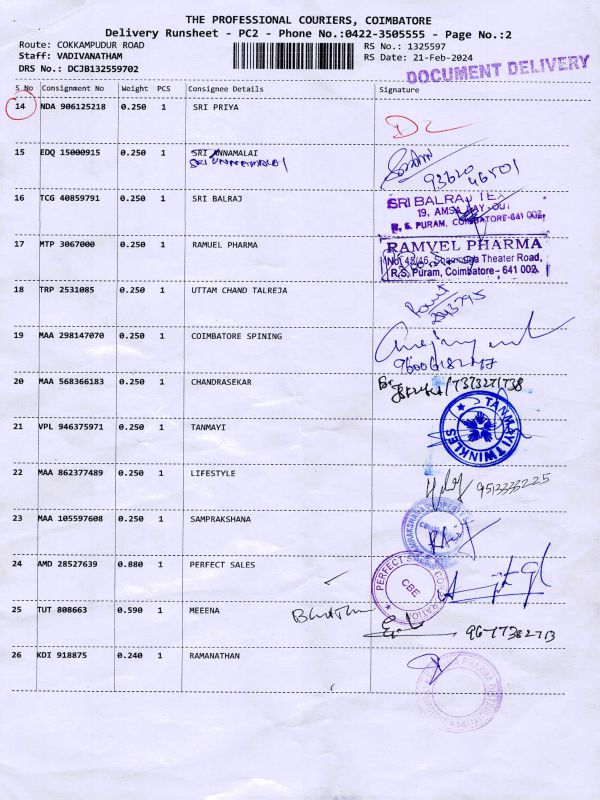 THE PROFESSIONAL COURIERS, COIMBATORE
Delivery Runsheet - PC2 - Phone No.:0422-3505555 - Page No.:2
Route: COKKAMPUDUR ROAD
Staff: VADIVANATHAM
DRS No.: DCJB132559702
RS No.: 1325597
RS Date: 21-Feb-2024
DOCUMENT DELIVERY
S No Consignment No Weight PCS Consignee Details Signature
14 NDA 906125218 0.250 1 SRI PRIYA
15 EDQ 15000915 0.250 1 SRI ANNAMALAI
93620
46501
16 TCG 40859791 0.250 1 SRI BALRAJ
SRI BALRAJ TEX
19, AMSA LAY-OUT
R. S. PURAM, COIMBATORE-641 002.
17 MTP 3067000 0.250 1 RAMUEL PHARMA
RAMVEL PHARMA
No. 45/46, Theater Road,
R.S. Puram, Coimbatore - 641 002.
18 TRP 2531085 0.250 1 UTTAM CHAND TALREJA
19 MAA 298147070 0.250 1 COIMBATORE SPINING
20 MAA 568366183 0.250 1 CHANDRASEKAR
/7373271738
21 VPL 946375971 0.250 1 TANMAYI
TANMAYI TWINKLES
22 MAA 862377489 0.250 1 LIFESTYLE
9513333225
23 MAA 105597608 0.250 1 SAMPRAKSHANA
24 AMD 28527639 0.880 1 PERFECT SALES
PERFECT SALES CORPORATION
CBE
25 TUT 808663 0.590 1 MEEENA
26 KDI 918875 0.240 1 RAMANATHAN